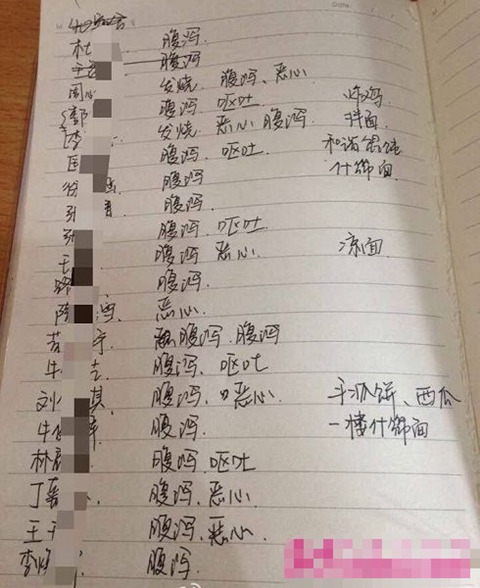 杜 腹泻.
王 腹泻
周 发烧、腹泻、恶心
郭 腹泻、呕吐 炸鸡
李 发烧 恶心 腹泻 拌面
腹泻、呕吐 和谐馄饨
腹泻 什锦面
腹泻.
腹泻、呕吐
王 腹泻 恶心 凉面
腹泻.
陈 恶心.
宁 腹泻、腹泻
牛 腹泻、呕吐
刘 其 腹泻、恶心 手抓饼、西瓜
牛 腹泻. 一楼什锦面
林 腹泻,呕吐
丁 腹泻,恶心
王 腹泻,恶心
李 腹泻.